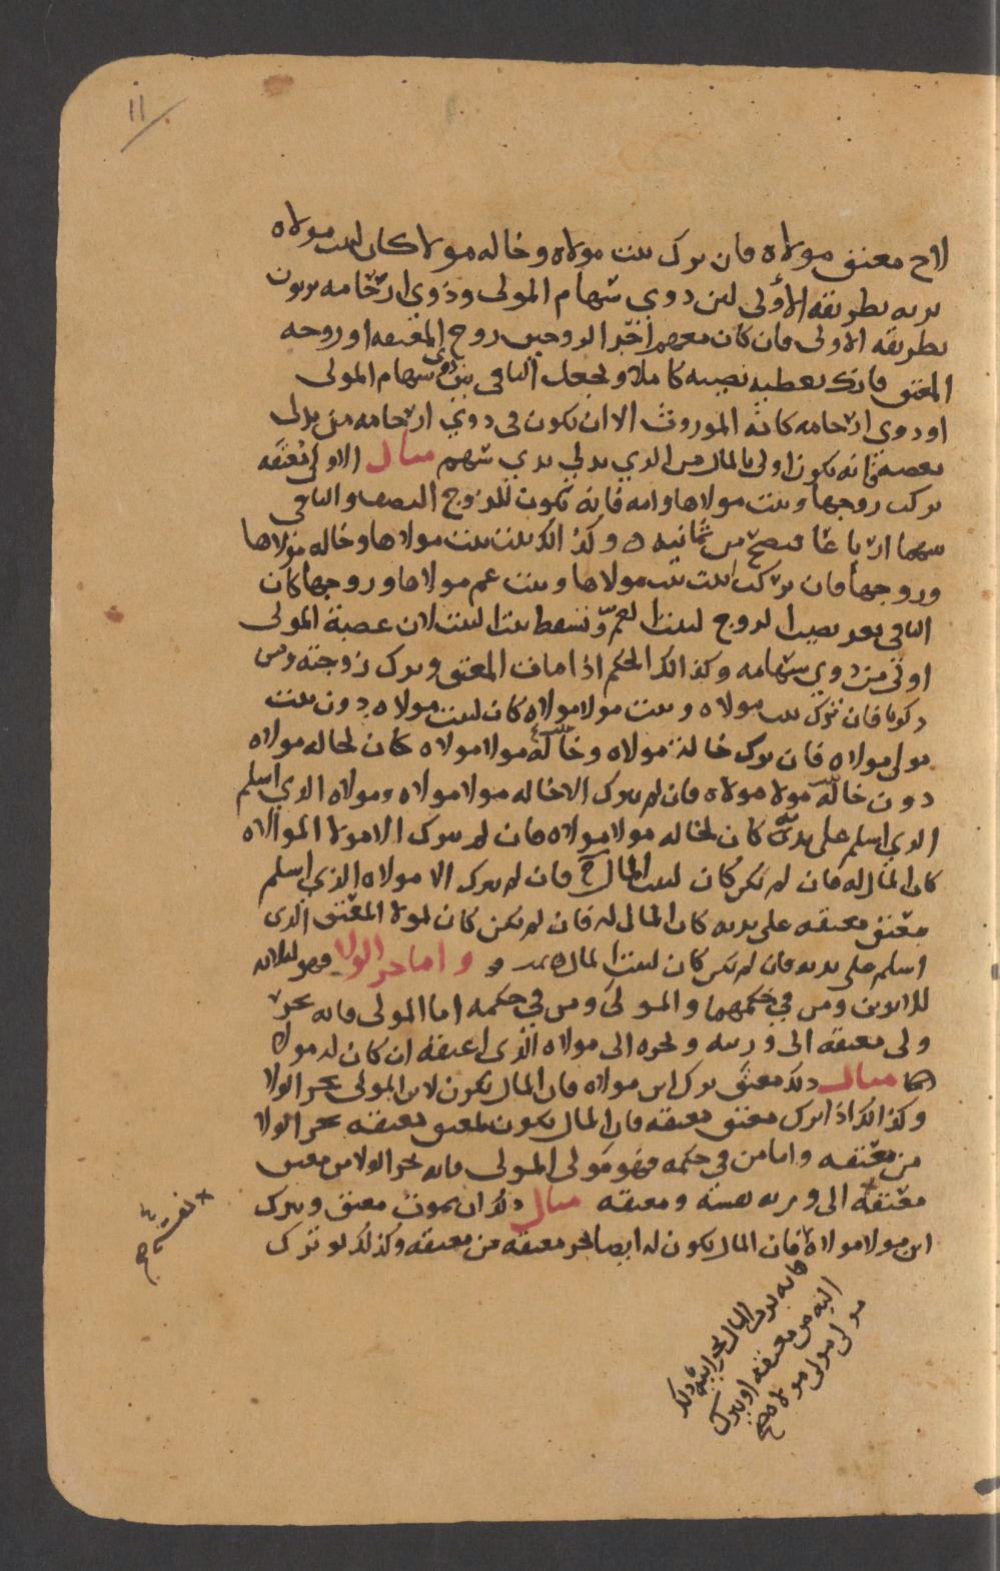 ١١
لاخ معتق مولاه فان ترك بنت مولاه وخاله مولاه كان لبنت مولاه
بطريقه الأولى لان ذوي سهام المولى وذوي ارحامه يرثون
بطريقه الاولى فان كان معهم احد الزوجين زوج المعتقه او زوجه
المعتق فانك تعطيه نصيبه كاملا وتجعل الباقي بين ذوي سهام المولى
او ذوي ارحامه كانه الموروث الا ان يكون في ذوي ارحامه من يدلي
بعصبه فانه يكون اولى بالمال من الذي يدلي بذي سهم مثال الاولى معتقه
تركت زوجها وبنت مولاها وامه فانه يكون للزوج النصف والباقي
بينهما ارباعا فتصح من ثمانيه وكذالك بنت بنت مولاها وخاله مولاها
وزوجها فان تركت بنت بنت مولاها وبنت عم مولاها وزوجها كان
الباقي بعد نصيب الزوج لبنت العم وتسقط بنت البنت لان عصبة المولى
اولى من ذوي سهامه وكذالك الحكم اذا مات المعتق وترك زوجته ومن
ذكرنا فان ترك بنت مولاه وبنت مولا مولاه كان لبنت مولاه دون بنت
مولى مولاه فان ترك خالة مولاه وخالة مولا مولاه كان لخاله مولاه
دون خالة مولا مولاه فان لم يترك الا خاله مولا مولاه ومولاه الذي اسلم
الذي اسلم على يديه كان لخاله مولا مولاه فان لم يترك الا مولا الموالاه
كان المال له فان لم يكن كان لبيت المال فان لم يترك الا مولاه الذي اسلم
معتق معتقه على يديه كان المال له فان لم يكن كان لمولا المعتق الذي
اسلم على يديه فان لم يكن كان لبيت المال واما جر الولا فهو لثلاثه
للابوين ومن في حكمهما والمولى ومن في حكمه اما المولى فانه يجر
ولى معتقه الى ورثته ويجره الى مولاه الذي اعتقه ان كان له مولا
مثال ذلك معتق ترك ابن مولاه فان المال يكون لابن المولى بجر الولا
وكذالك اذا ترك معتق معتقه فان المال يكون لمعتق معتقه بجر الولا
من معتقه واما من في حكمه فهو مولى المولى فانه يجر الولا من معتق
معتقه الى ورثه نفسه ومعتقه مثال ذلك ان يموت معتق ويترك
ابن مولا مولاه فان المال يكون له ايضا بجر معتقه من معتقه وكذلك لو ترك
فانه يرث المال بجر ابيه ذلك
اليه من معتقه او يترك
مولى مولى مولاه صح